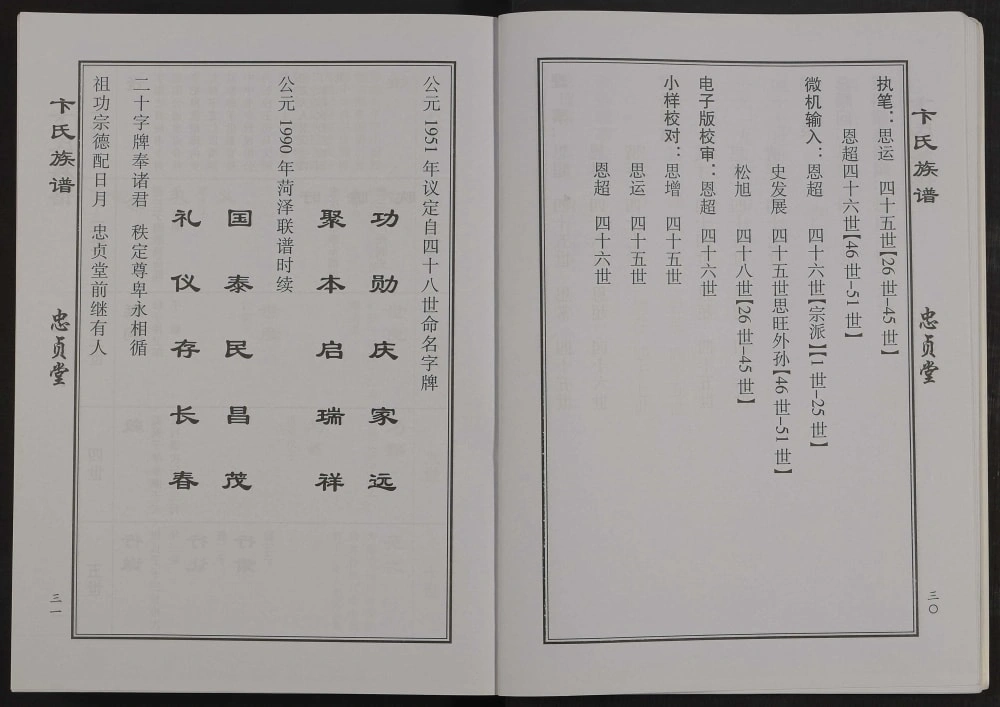 卞氏族谱
忠贞堂
三〇
执笔：思运 四十五世【26世–45世】
恩超四十六世【46世–51世】
微机输入：恩超 四十六世【宗派】【1世–25世】
史发展 四十五世思旺外孙【46世–51世】
松旭 四十八世【26世–45世】
电子版校审：恩超 四十六世
小样校对：思增 四十五世
思运 四十五世
恩超 四十六世
公元1951年议定自四十八世命名字牌
功勋庆家远
聚本启瑞祥
公元1990年菏泽联谱时续
国泰民昌茂
礼仪存长春
二十字牌奉诸君 秩定尊卑永相循
祖功宗德配日月 忠贞堂前继有人
卞氏族谱
忠贞堂
三一